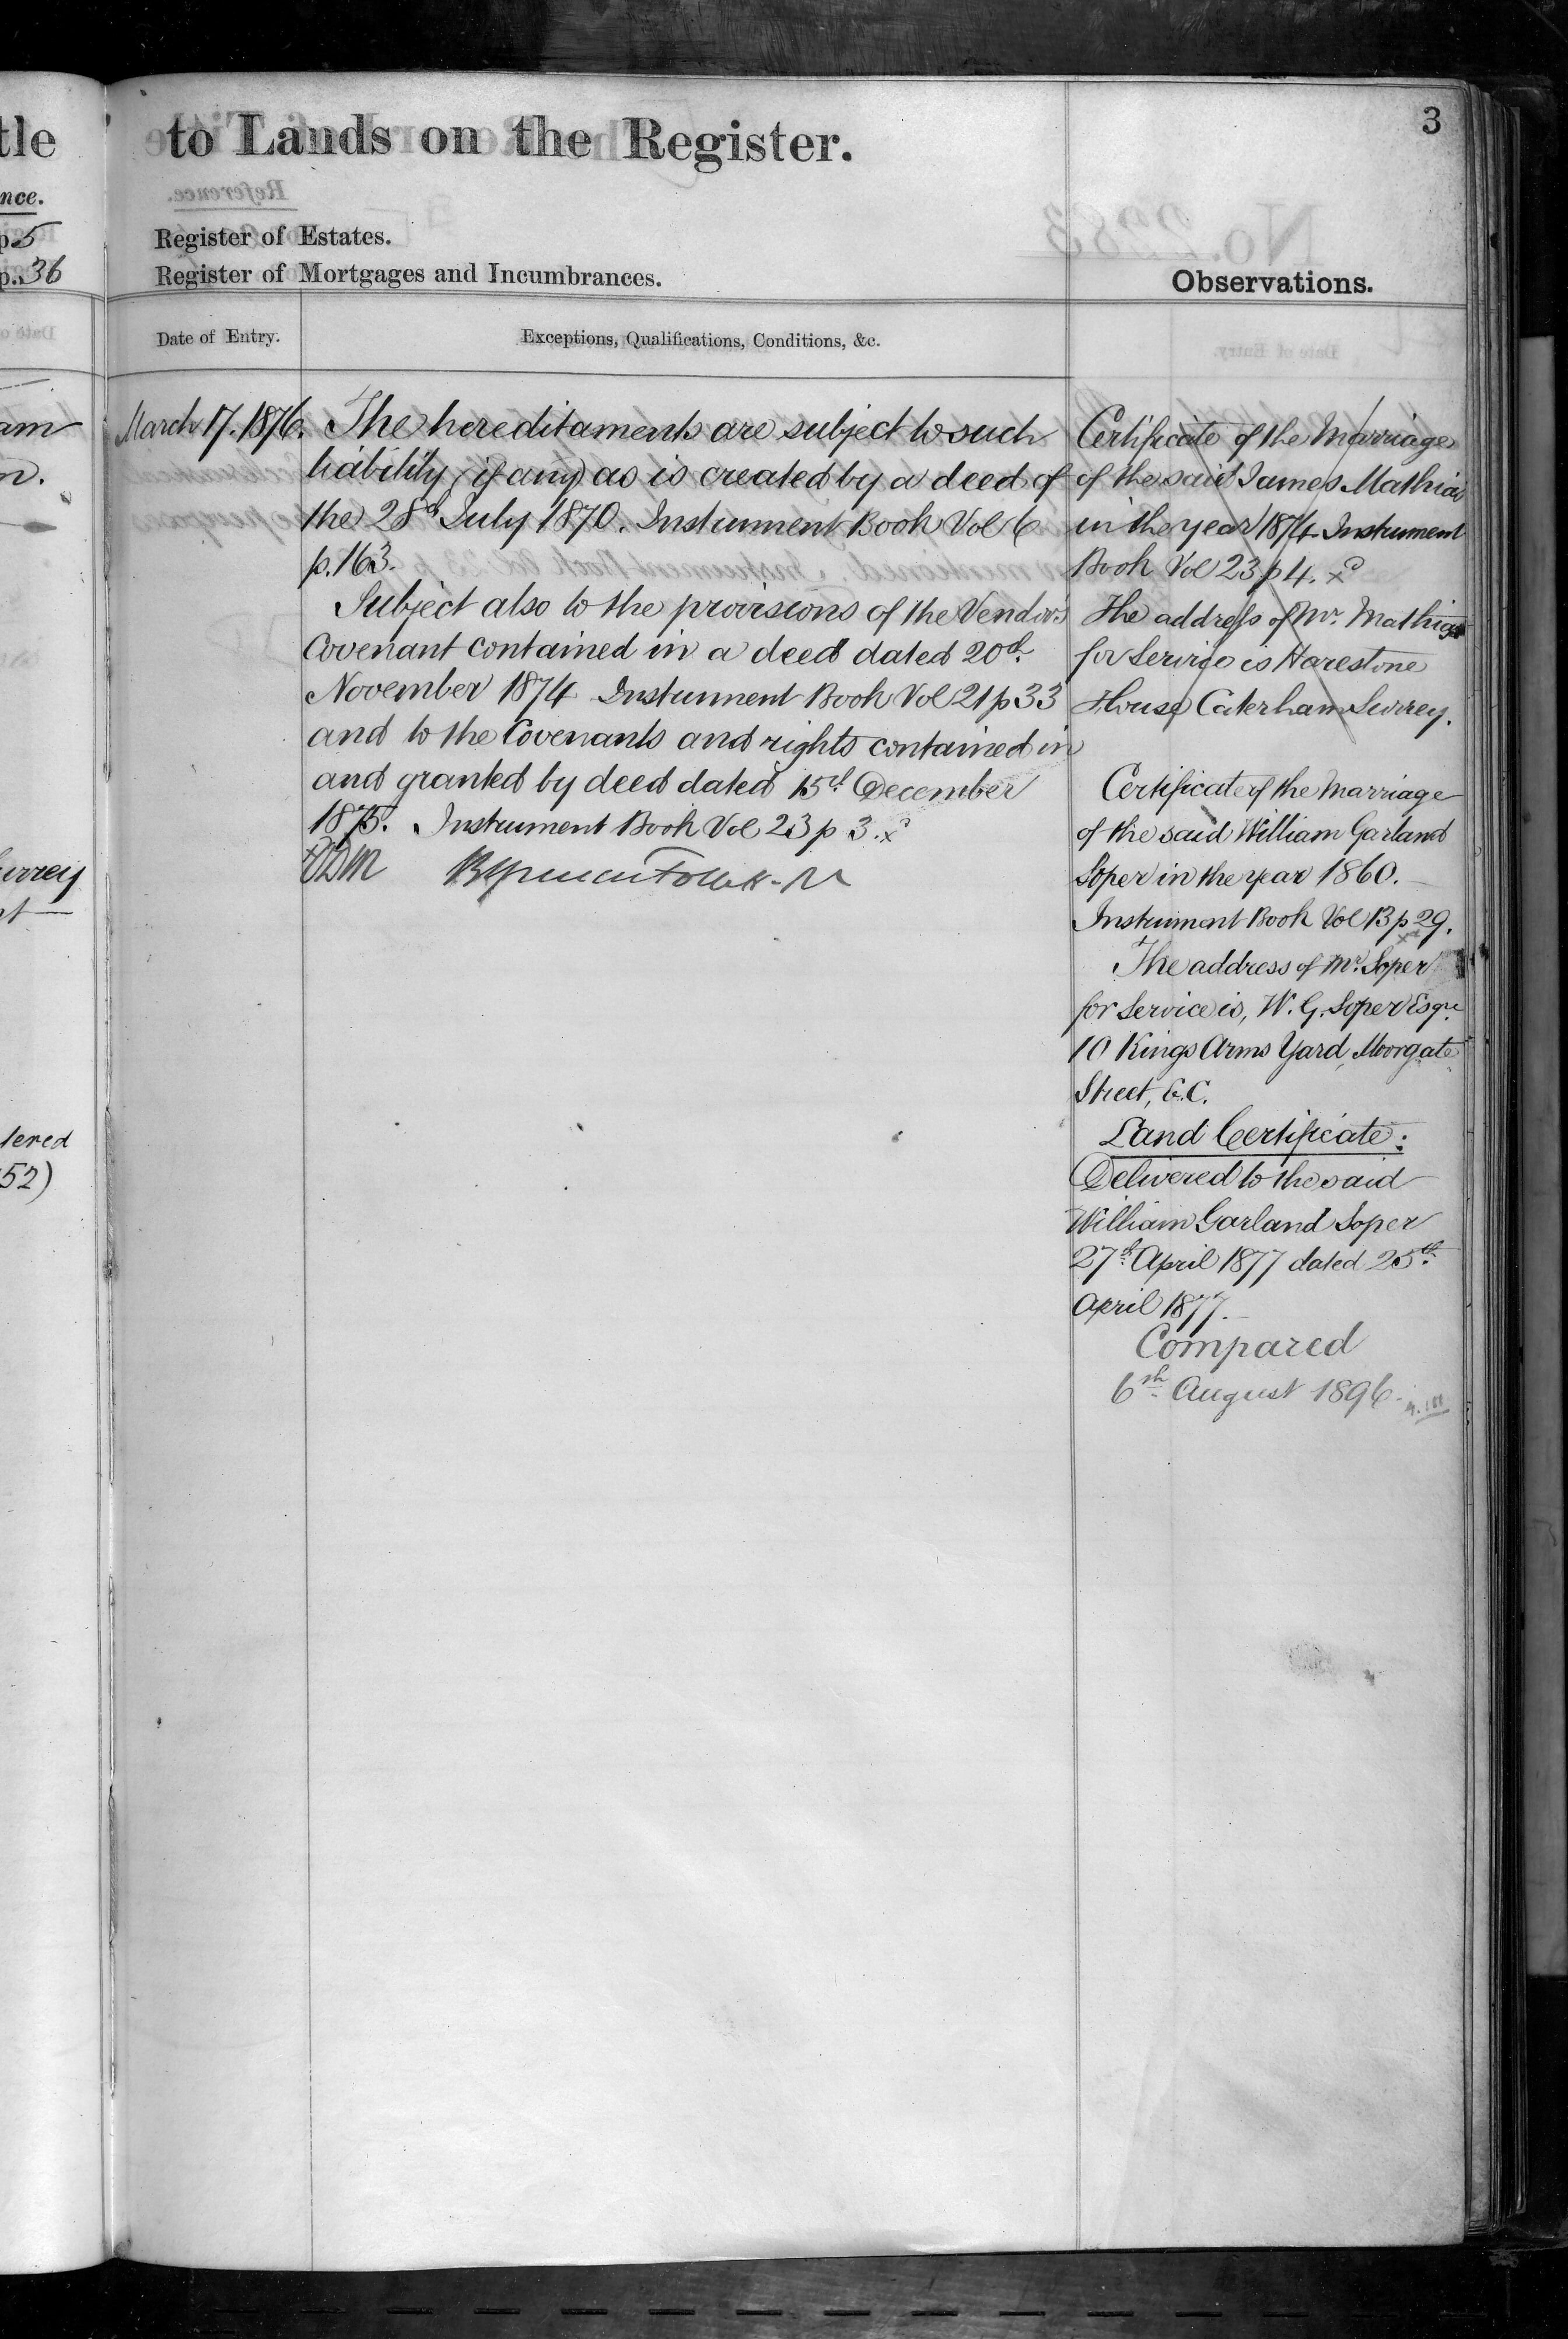 tle
nce.
p. 5
p. 36
am
n.
urrey
nt
tered
52)
3
to Lands on the Register.
Register of Estates.
Register of Mortgages and Incumbrances.
Date of Entry.
Exceptions, Qualifications, Conditions, &c.
March 17. 1876.
The hereditaments are subject to such
liability (if any) as is created by a deed of
the 28th July 1870. Instrument Book Vol 6
p. 163.
Subject also to the provisions of the Vendor's
Covenant contained in a deed dated 20th
November 1874 Instrument Book Vol 21 p 33
and to the Covenants and rights contained in
and granted by deed dated 15th December
1875. Instrument Book Vol 23 p 3. x
Observations.
Certificate of the Marriage
of the said James Mathias
in the year 1874. Instrument
Book Vol 23 p 4. x
The address of Mr. Mathias
for Service is Harestone
House Caterham Surrey.
Certificate of the Marriage
of the said William Garland
Soper in the year 1860.
Instrument Book Vol 13 p 29.
The address of Mr. Soper
for Service is, W. G. Soper Esqre
10 Kings Arms Yard, Moorgate
Street, E.C.
Land Certificate:
Delivered to the said
William Garland Soper
27th April 1877 dated 25th
April 1877.
Compared
6th August 1896.